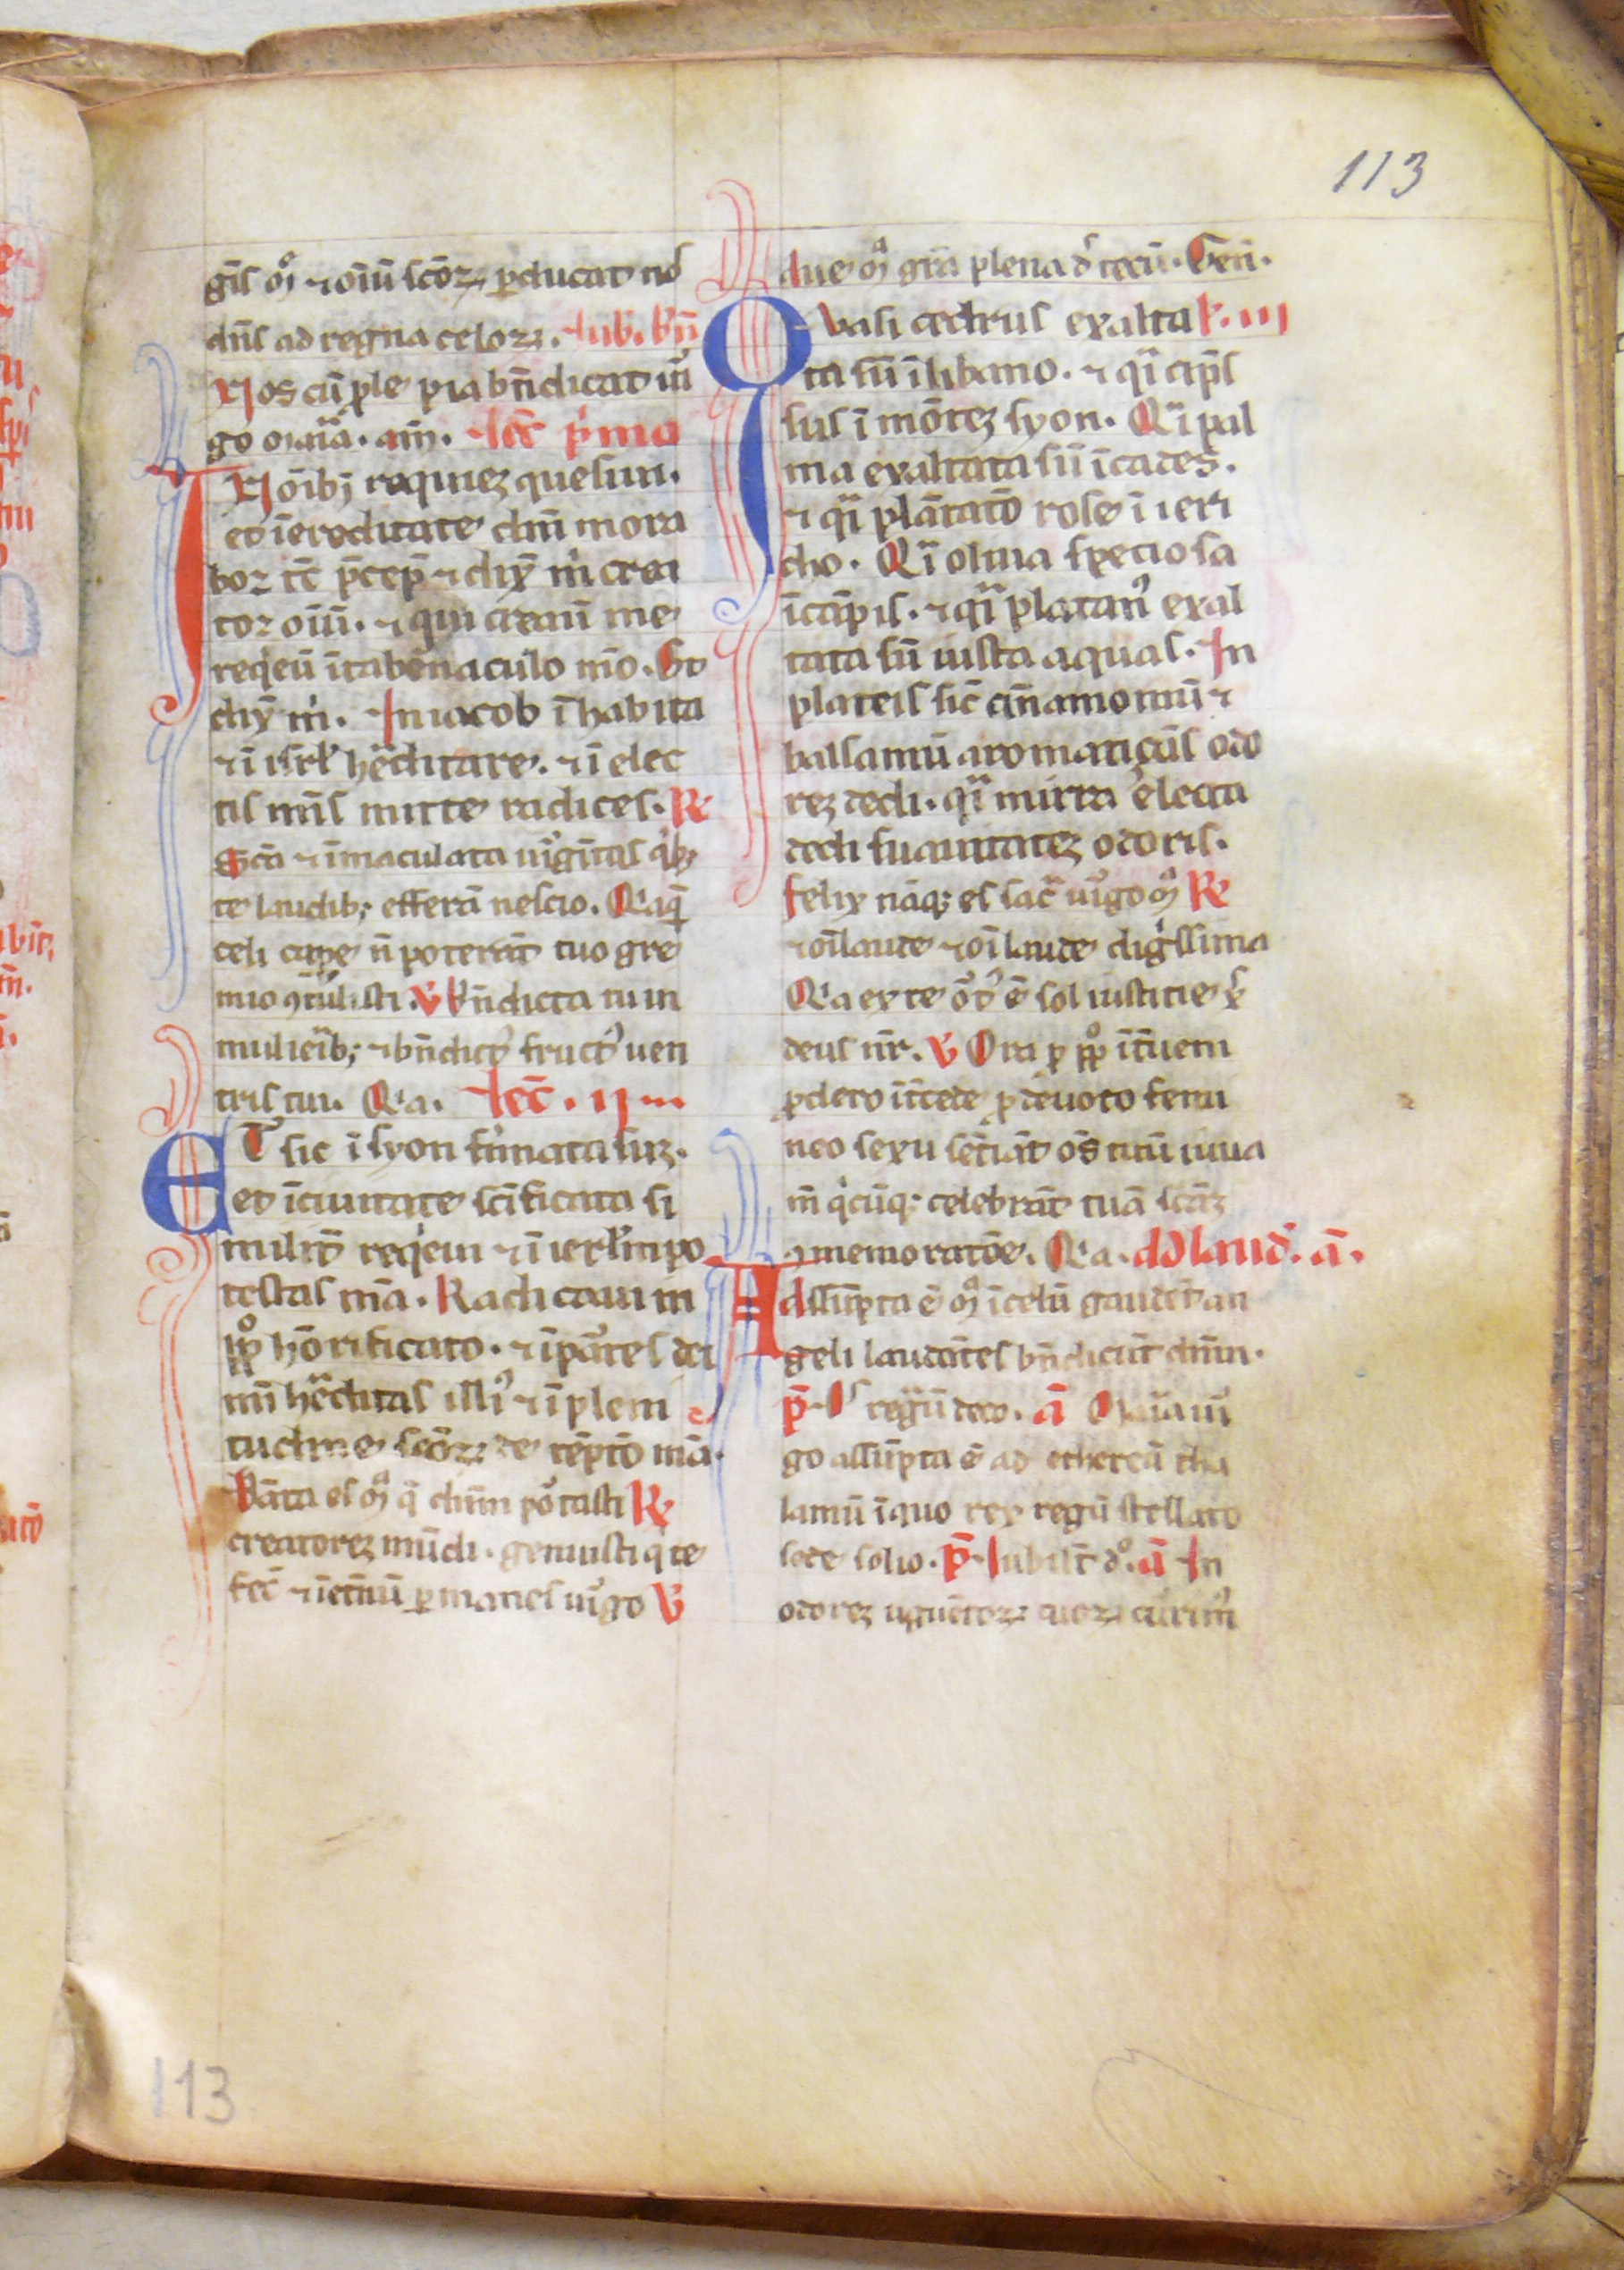 113
gīs oꝫ ⁊ oīū scōꝝ ꝑducat nos
dn̄s ad regna celoꝝ. Iub. bn̄
Nos cū ꝓle pia bn̄dicat uir
go maria. am̄. lec̄ p̄ma
IN oīb; requieꝫ quesiui.
et ī ereditate dn̄i mora
bor tc̄ p̄cep̄ ⁊ dix̄ m̄ crea
tor oīū. ⁊ qui creauī me
reqeuī ī tab̄naculo m̄o. Et
dix̄ m̄. In iacob īhabita
⁊ ī isrl̄ hēditare. ⁊ ī elec
tis m̄is mitte radices. R
Scā ⁊ īmaculata uirgītas qb;
te laudib; efferā nescio. Qa q̄
celi cape n̄ poterāt tuo gre
mio ꝯtulisti. V Bn̄dicta tu in
mulierib; ⁊ bn̄dict fruct uen
tris tui. Qa. lec̄. II
ET sic ī syon firmata suꝫ.
et ī ciuitate scīficata si
milit̄ reqeui ⁊ ī ierl̄m po
testas m̄a. Radicaui in
pplo hōrificato. ⁊ ī partes dei
mī hēditas illi ⁊ ī pleni
tudine scōꝝ detēptō m̄a.
Bāta es oꝫ q̄ dn̄m portasti R
creatoreꝫ mūdi. genuisti q te
fec̄ ⁊ ī et̄nū ꝑmanes uirgo V
Aue oꝫ grā plena ds tecū. Gen̄.
Quasi cedrus exalta l. III
ta sū ī libano. ⁊ qi cip̄s
sus ī mōteꝫ syon. Qi pal
ma exaltata sū ī cades.
⁊ qi plātatō rose ī ieri
cho. Qi oliua speciosa
ī cāpis. ⁊ qi platan exal
tata sū iusta aquas. In
plateis sic̄ cīnamomū ⁊
balsamū aromatiçās odo
reꝫ dedi. qi mirra electa
dedi suauitateꝫ odoris.
Felix nāq; es sac̄ uirgo oꝫ R
⁊ oī laude ⁊ oī laude digissima
Qa ex te ort ē sol iusticie x
deus nr̄. V Ora ꝓ pplo īt̄ueni
ꝓ clero īt̄cede ꝓ deuoto femi
neo sexu sētiāt os tuū iuua
m̄ qcūq; celebrāt tuā scāꝫ
ꝯmemoratōe. Qa. Ad laud. ā.
Assūpta ē oꝫ ī celū gaudēt an
geli laudātes bn̄dicūt dn̄m.
p̄. Ds regū dec. ā Maria uir
go assūpta ē ad ethereā tha
lamū ī quo rex regū stellato
sede solio. p̄ Iubilt̄ do. ā In
odoreꝫ ūguētoꝝ tuoꝝ currim
113